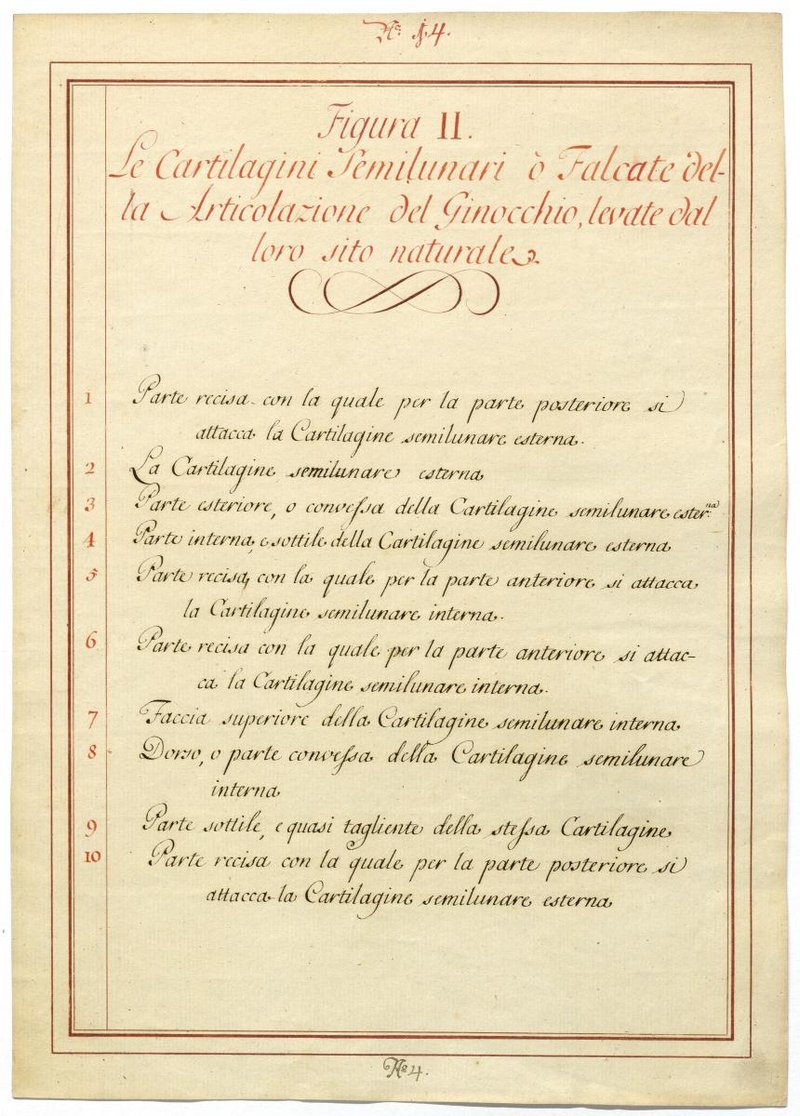 No. 14.
Figura II.
Le Cartilagini Semilunari ò Falcate del-
la Articolazione del Ginocchio, levate dal
loro sito naturale.
1 Parte recisa con la quale per la parte posteriore si
attacca la Cartilagine semilunare esterna.
2 La Cartilagine semilunare esterna
3 Parte esteriore, o convessa della Cartilagine semilunare ester.na
4 Parte interna, e sottile della Cartilagine semilunare esterna
5 Parte recisa, con la quale per la parte anteriore si attacca
la Cartilagine semilunare interna.
6 Parte recisa con la quale per la parte anteriore si attac-
ca la Cartilagine semilunare interna.
7 Faccia superiore della Cartilagine semilunare interna
8 Dorso, o parte convessa della Cartilagine semilunare
interna
9 Parte sottile, e quasi tagliente della stessa Cartilagine
10 Parte recisa con la quale per la parte posteriore si
attacca la Cartilagine semilunare esterna
No 4.